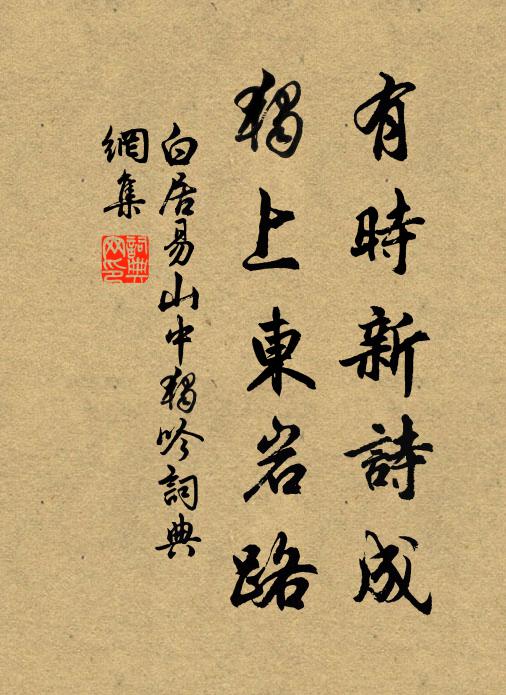 有時新詩成
獨上東岩路
白居易山中獨吟詞典
網集
詞典
网印